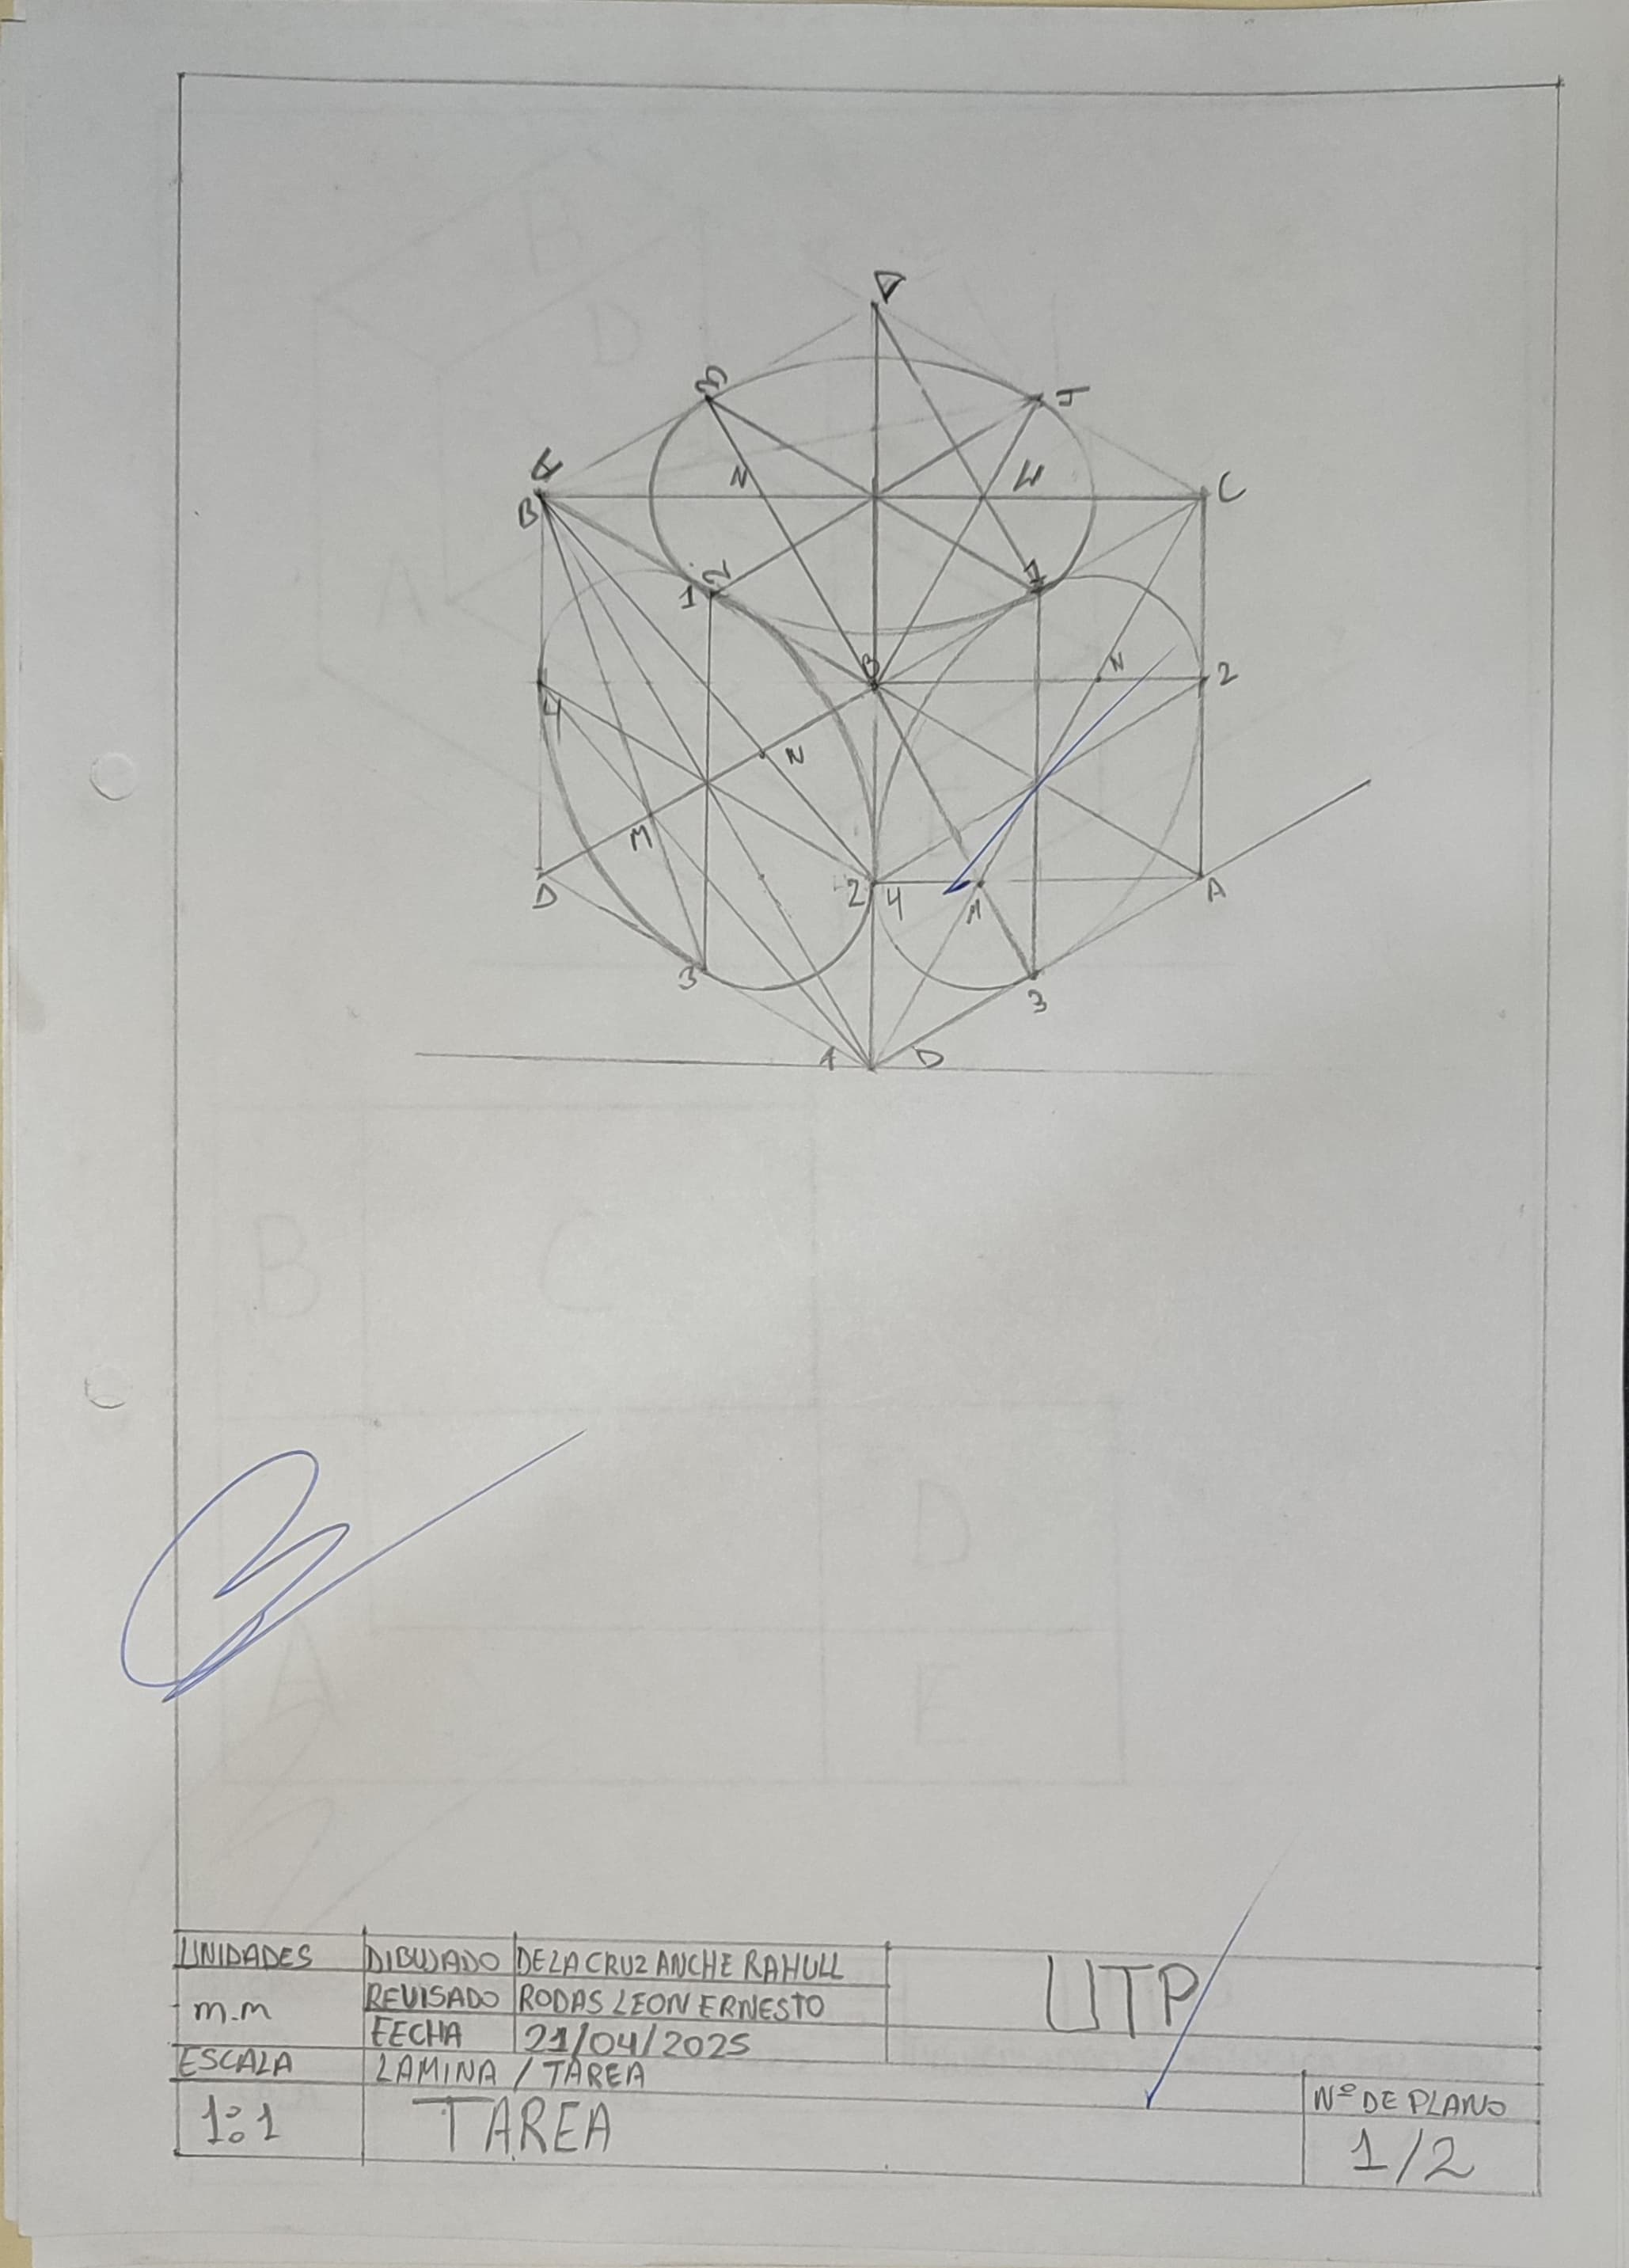 D
3 4
A N M C
B
1 2 1
B N 2
4
N
M
D 2 4 M A
3 3
A D
B C
D
A E
UNIDADES DIBUJADO DE LA CRUZ ANCHE RAHULL UTP
m.m REVISADO RODAS LEON ERNESTO
FECHA 21/04/2025
ESCALA LAMINA / TAREA
1:1 TAREA
Nº DE PLANO
1/2